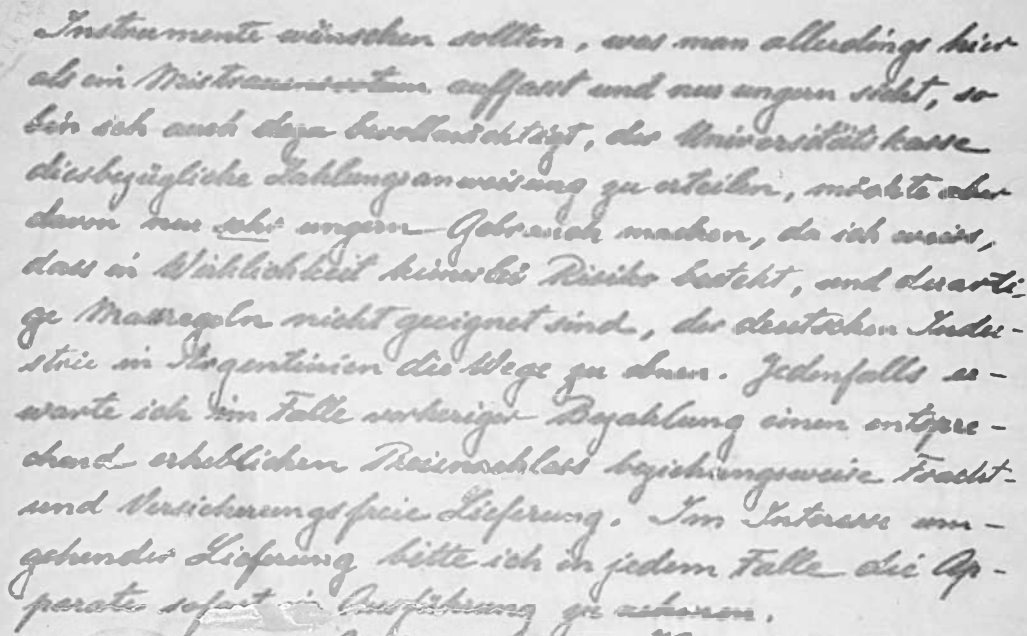 Instrumente wünschen sollten, was man allerdings hier
als ein Mistrauensvotum auffasst und nur ungern sieht, so
bin ich auch dazu bevollmächtigt, der Universitätskasse
diesbezügliche Zahlungsanweisung zu erteilen, möchte aber
davon nur sehr ungern Gebrauch machen, da ich weiss,
dass in Wirklichkeit keinerlei Risiko besteht, und derarti-
ge Massregeln nicht geeignet sind, der deutschen Indu-
strie in Argentinien die Wege zu ebnen. Jedenfalls er-
warte ich im Falle vorheriger Bezahlung einen entspre-
chend erheblichen Preisnachlass beziehungsweise Fracht-
und Versicherungsfreie Lieferung. Im Interesse um-
gehender Lieferung bitte ich in jedem Falle die Ap-
parate sofort in Ausführung zu nehmen.